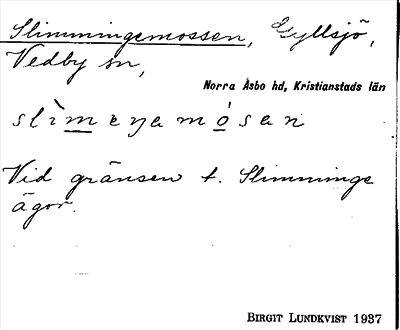 Slimmingemossen, Gyllsjö,
Vedby sn,
Norra Åsbo hd, Kristianstads län
slìmeŋamósan
Vid gränsen t. Slimminge
ägor.
BIRGIT LUNDKVIST 1937